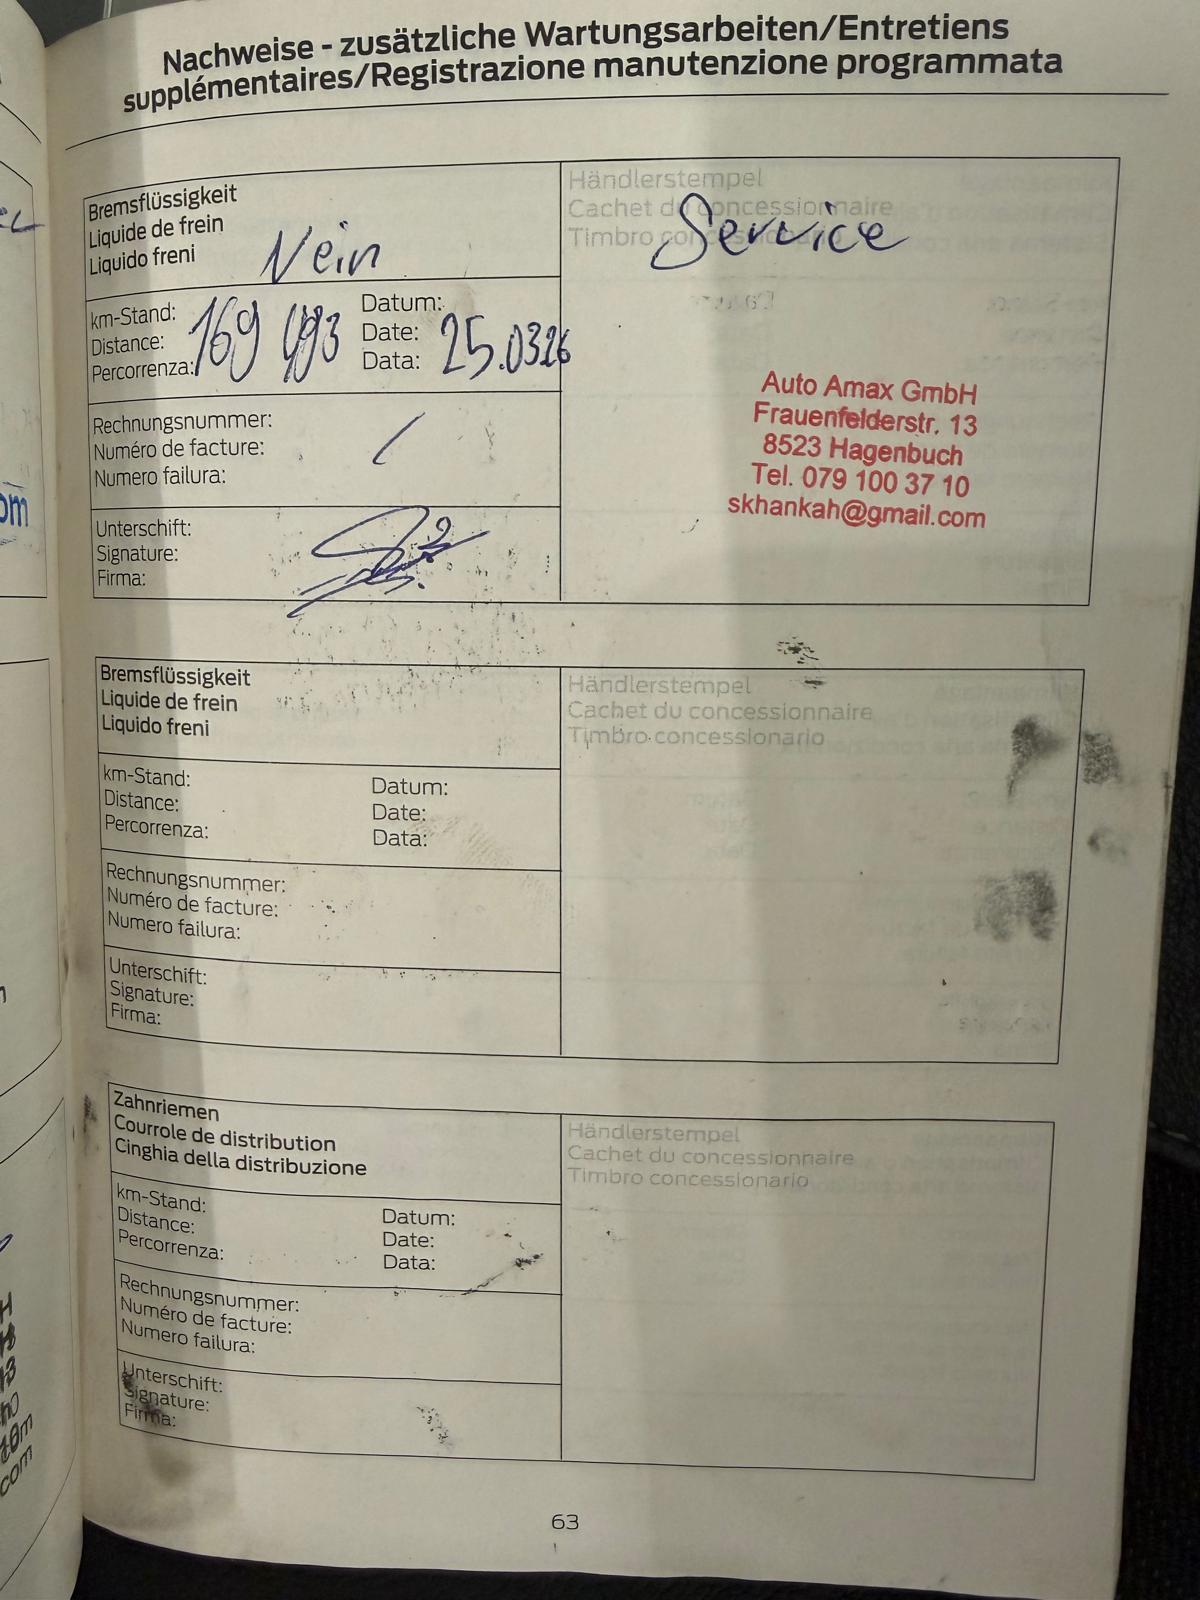 Nachweise - zusätzliche Wartungsarbeiten/Entretiens
supplémentaires/Registrazione manutenzione programmata
Bremsflüssigkeit
Liquide de frein
Liquido freni
Nein
Händlerstempel
Cachet du concessionnaire
Timbro concessionario
Service
km-Stand:
Distance:
Percorrenza:
169 493
Datum:
Date:
Data:
25.03.26
Rechnungsnummer:
Numéro de facture:
Numero failura:
/
Unterschift:
Signature:
Firma:
Auto Amax GmbH
Frauenfelderstr. 13
8523 Hagenbuch
Tel. 079 100 37 10
skhankah@gmail.com
Bremsflüssigkeit
Liquide de frein
Liquido freni
Händlerstempel
Cachet du concessionnaire
Timbro concessionario
km-Stand:
Distance:
Percorrenza:
Datum:
Date:
Data:
Rechnungsnummer:
Numéro de facture:
Numero failura:
Unterschift:
Signature:
Firma:
Zahnriemen
Courrole de distribution
Cinghia della distribuzione
Händlerstempel
Cachet du concessionnaire
Timbro concessionario
km-Stand:
Distance:
Percorrenza:
Datum:
Date:
Data:
Rechnungsnummer:
Numéro de facture:
Numero failura:
Unterschift:
Signature:
Firma:
63